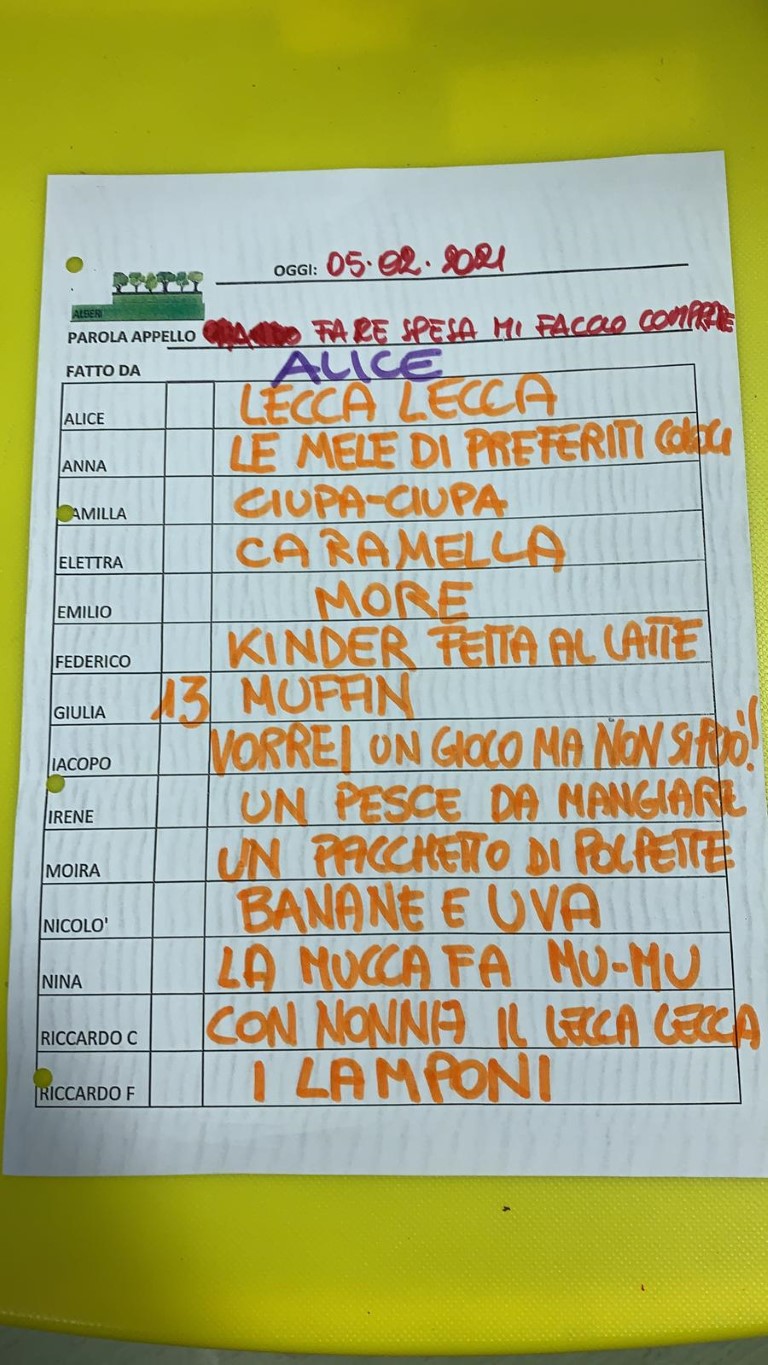 OGGI: 05.02.2021
ALBERI
PAROLA APPELLO FARE SPESA MI FACCIO COMPRARE
FATTO DA ALICE
ALICE LECCA LECCA
ANNA LE MELE DI PREFERITI
AMILLA CIUPA-CIUPA
ELETTRA CARAMELLA
EMILIO MORE
FEDERICO KINDER FETTA AL LATTE
GIULIA 13 MUFFIN
IACOPO VORREI UN GIOCO MA NON SI PUÒ!
IRENE UN PESCE DA MANGIARE
MOIRA UN PACCHETTO DI POLPETTE
NICOLO' BANANE E UVA
NINA LA MUCCA FA MU-MU
RICCARDO C CON NONNA IL LECCA LECCA
RICCARDO F I LAMPONI